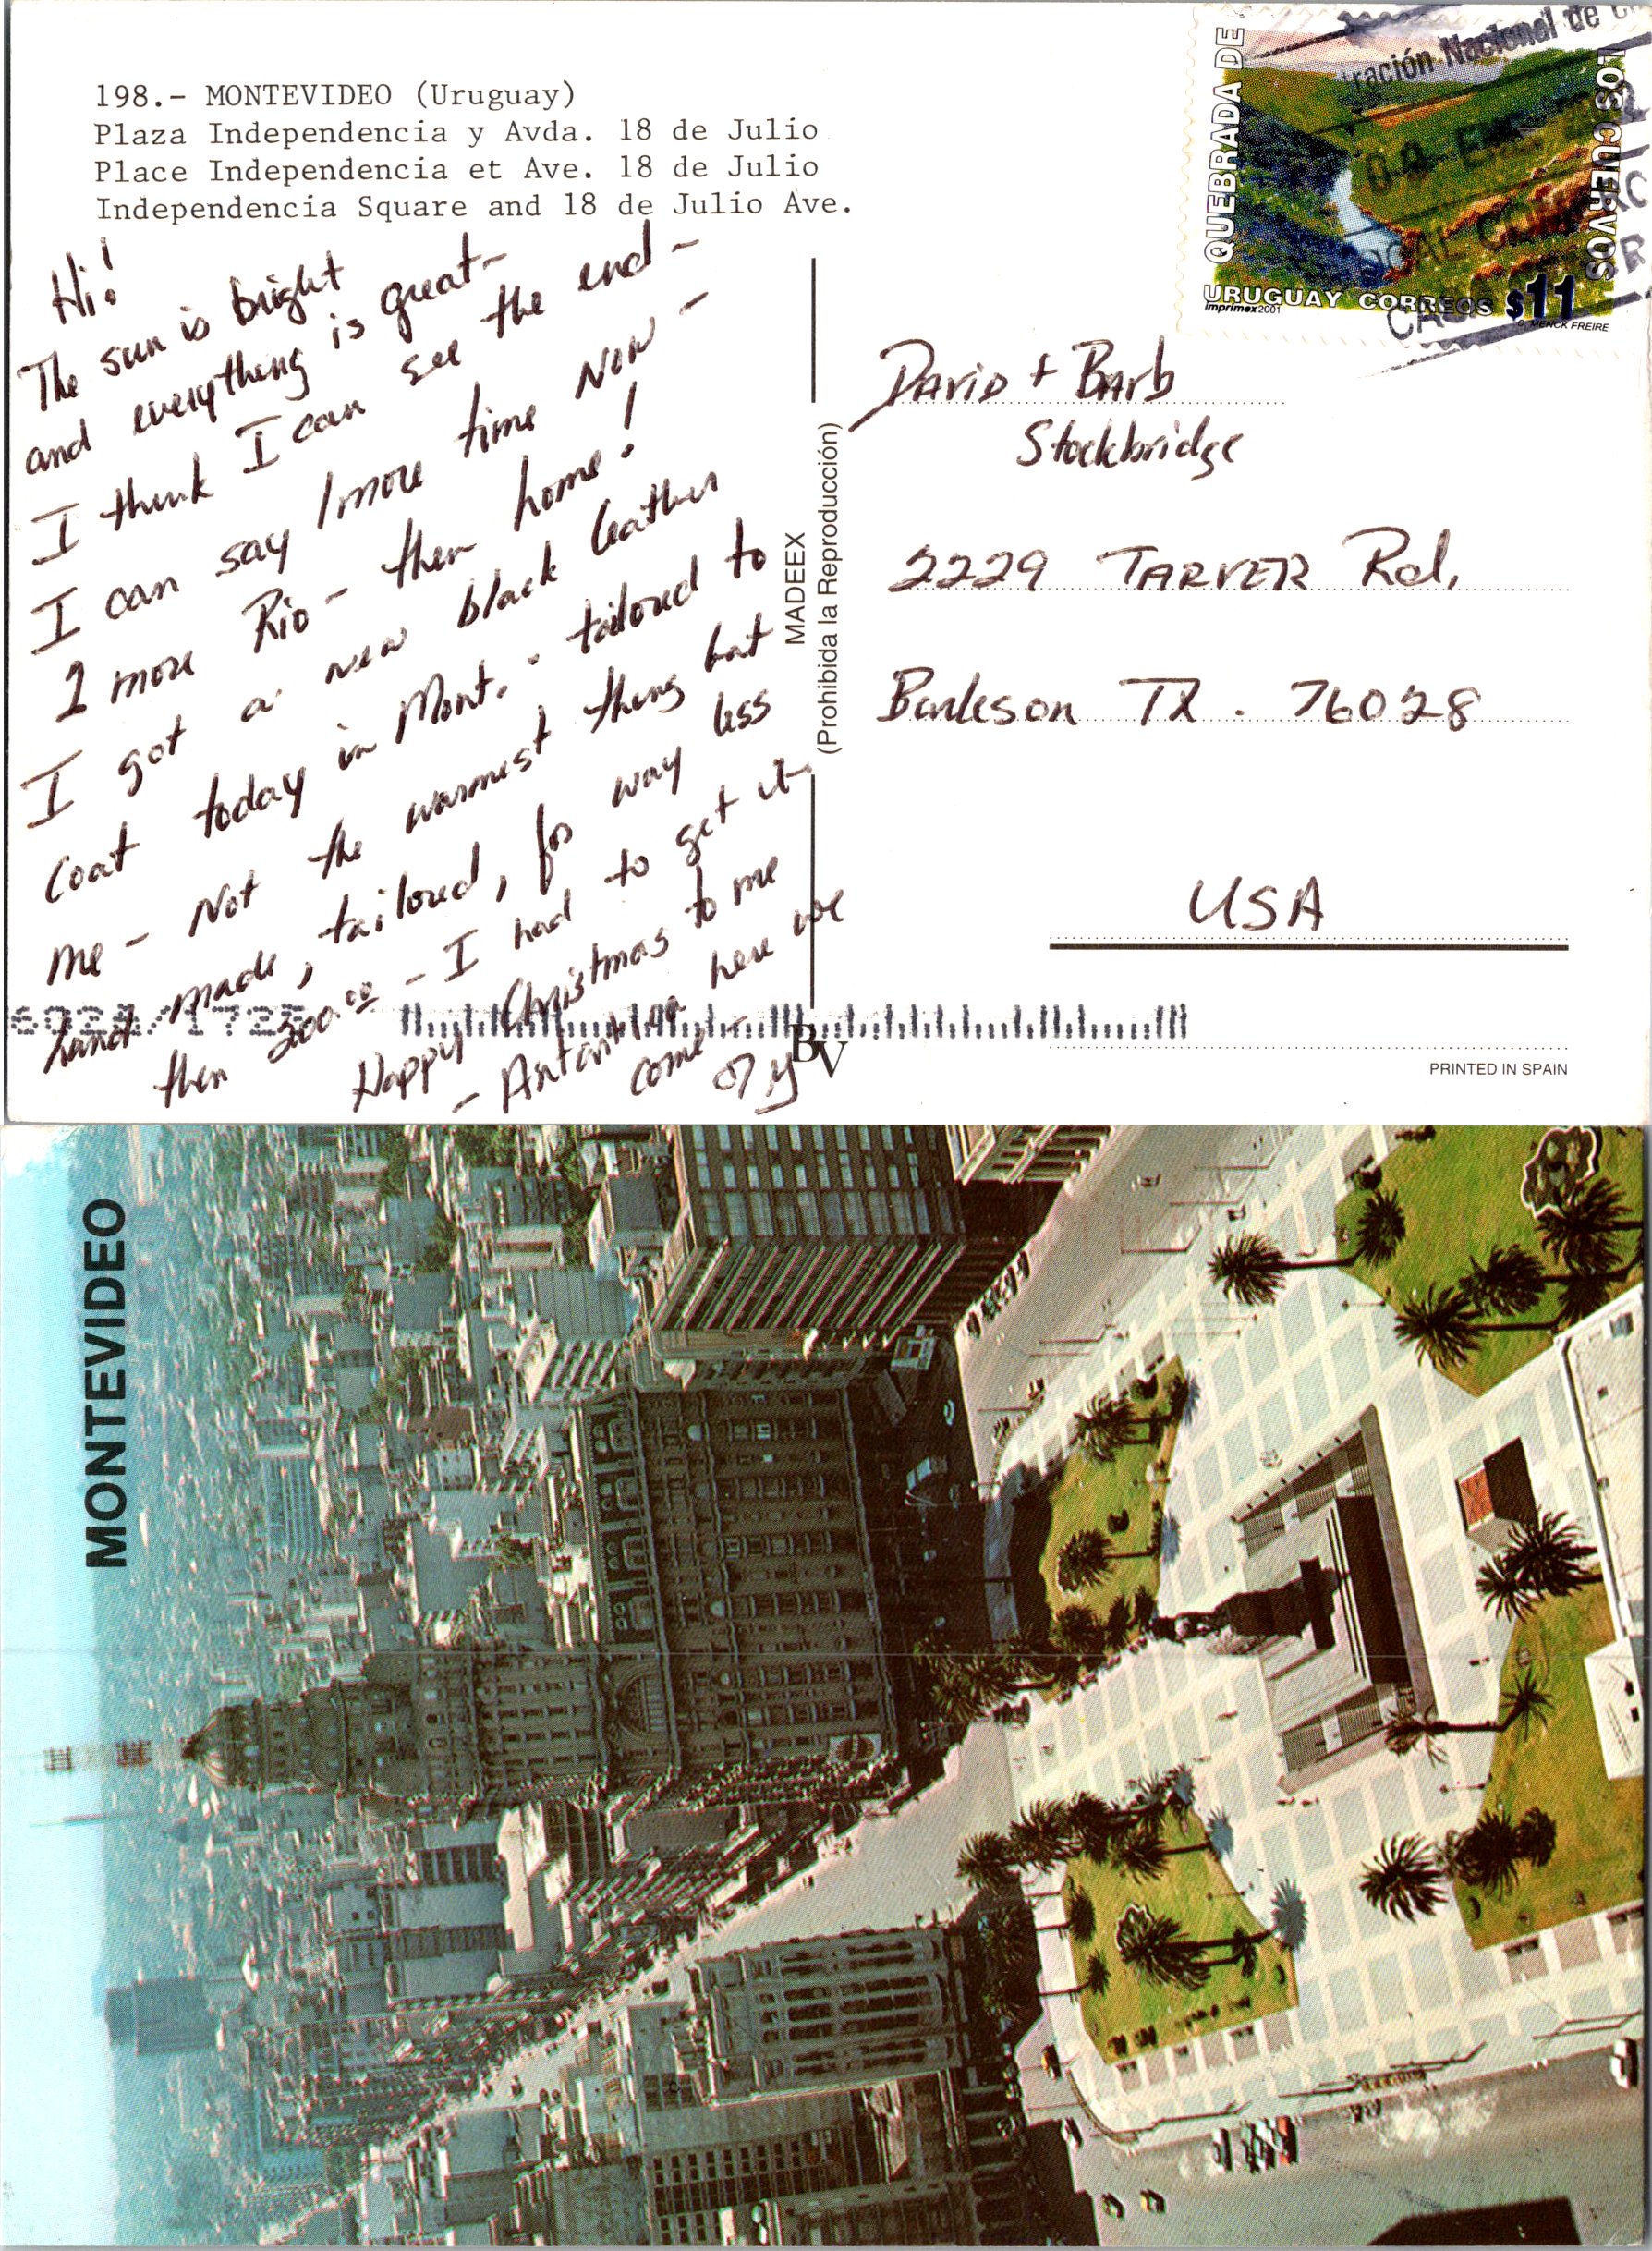 198.- MONTEVIDEO (Uruguay)
Plaza Independencia y Avda. 18 de Julio
Place Independencia et Ave. 18 de Julio
Independencia Square and 18 de Julio Ave.
Hi!
The sun is bright
and everything is great-
I think I can see the end -
I can say 1 more time now -
1 more Rio - then home!
I got a new black leather
coat today in Mont. - tailored to
me - Not the warmest thing but
hand made, tailored, for way less
then 200.00 - I had to get it
Happy Christmas to me
- Antartica here we
come -
MADEEX
(Prohibida la Reproducción)
BV
QUEBRADA DE
LOS CUERVOS
URUGUAY CORREOS $11
imprimex 2001
C. MENCK FREIRE
tración Nacional de
04
David + Barb
Stockbridge
2229 TARVER Rd.
Burleson TX. 76028
USA
PRINTED IN SPAIN
MONTEVIDEO